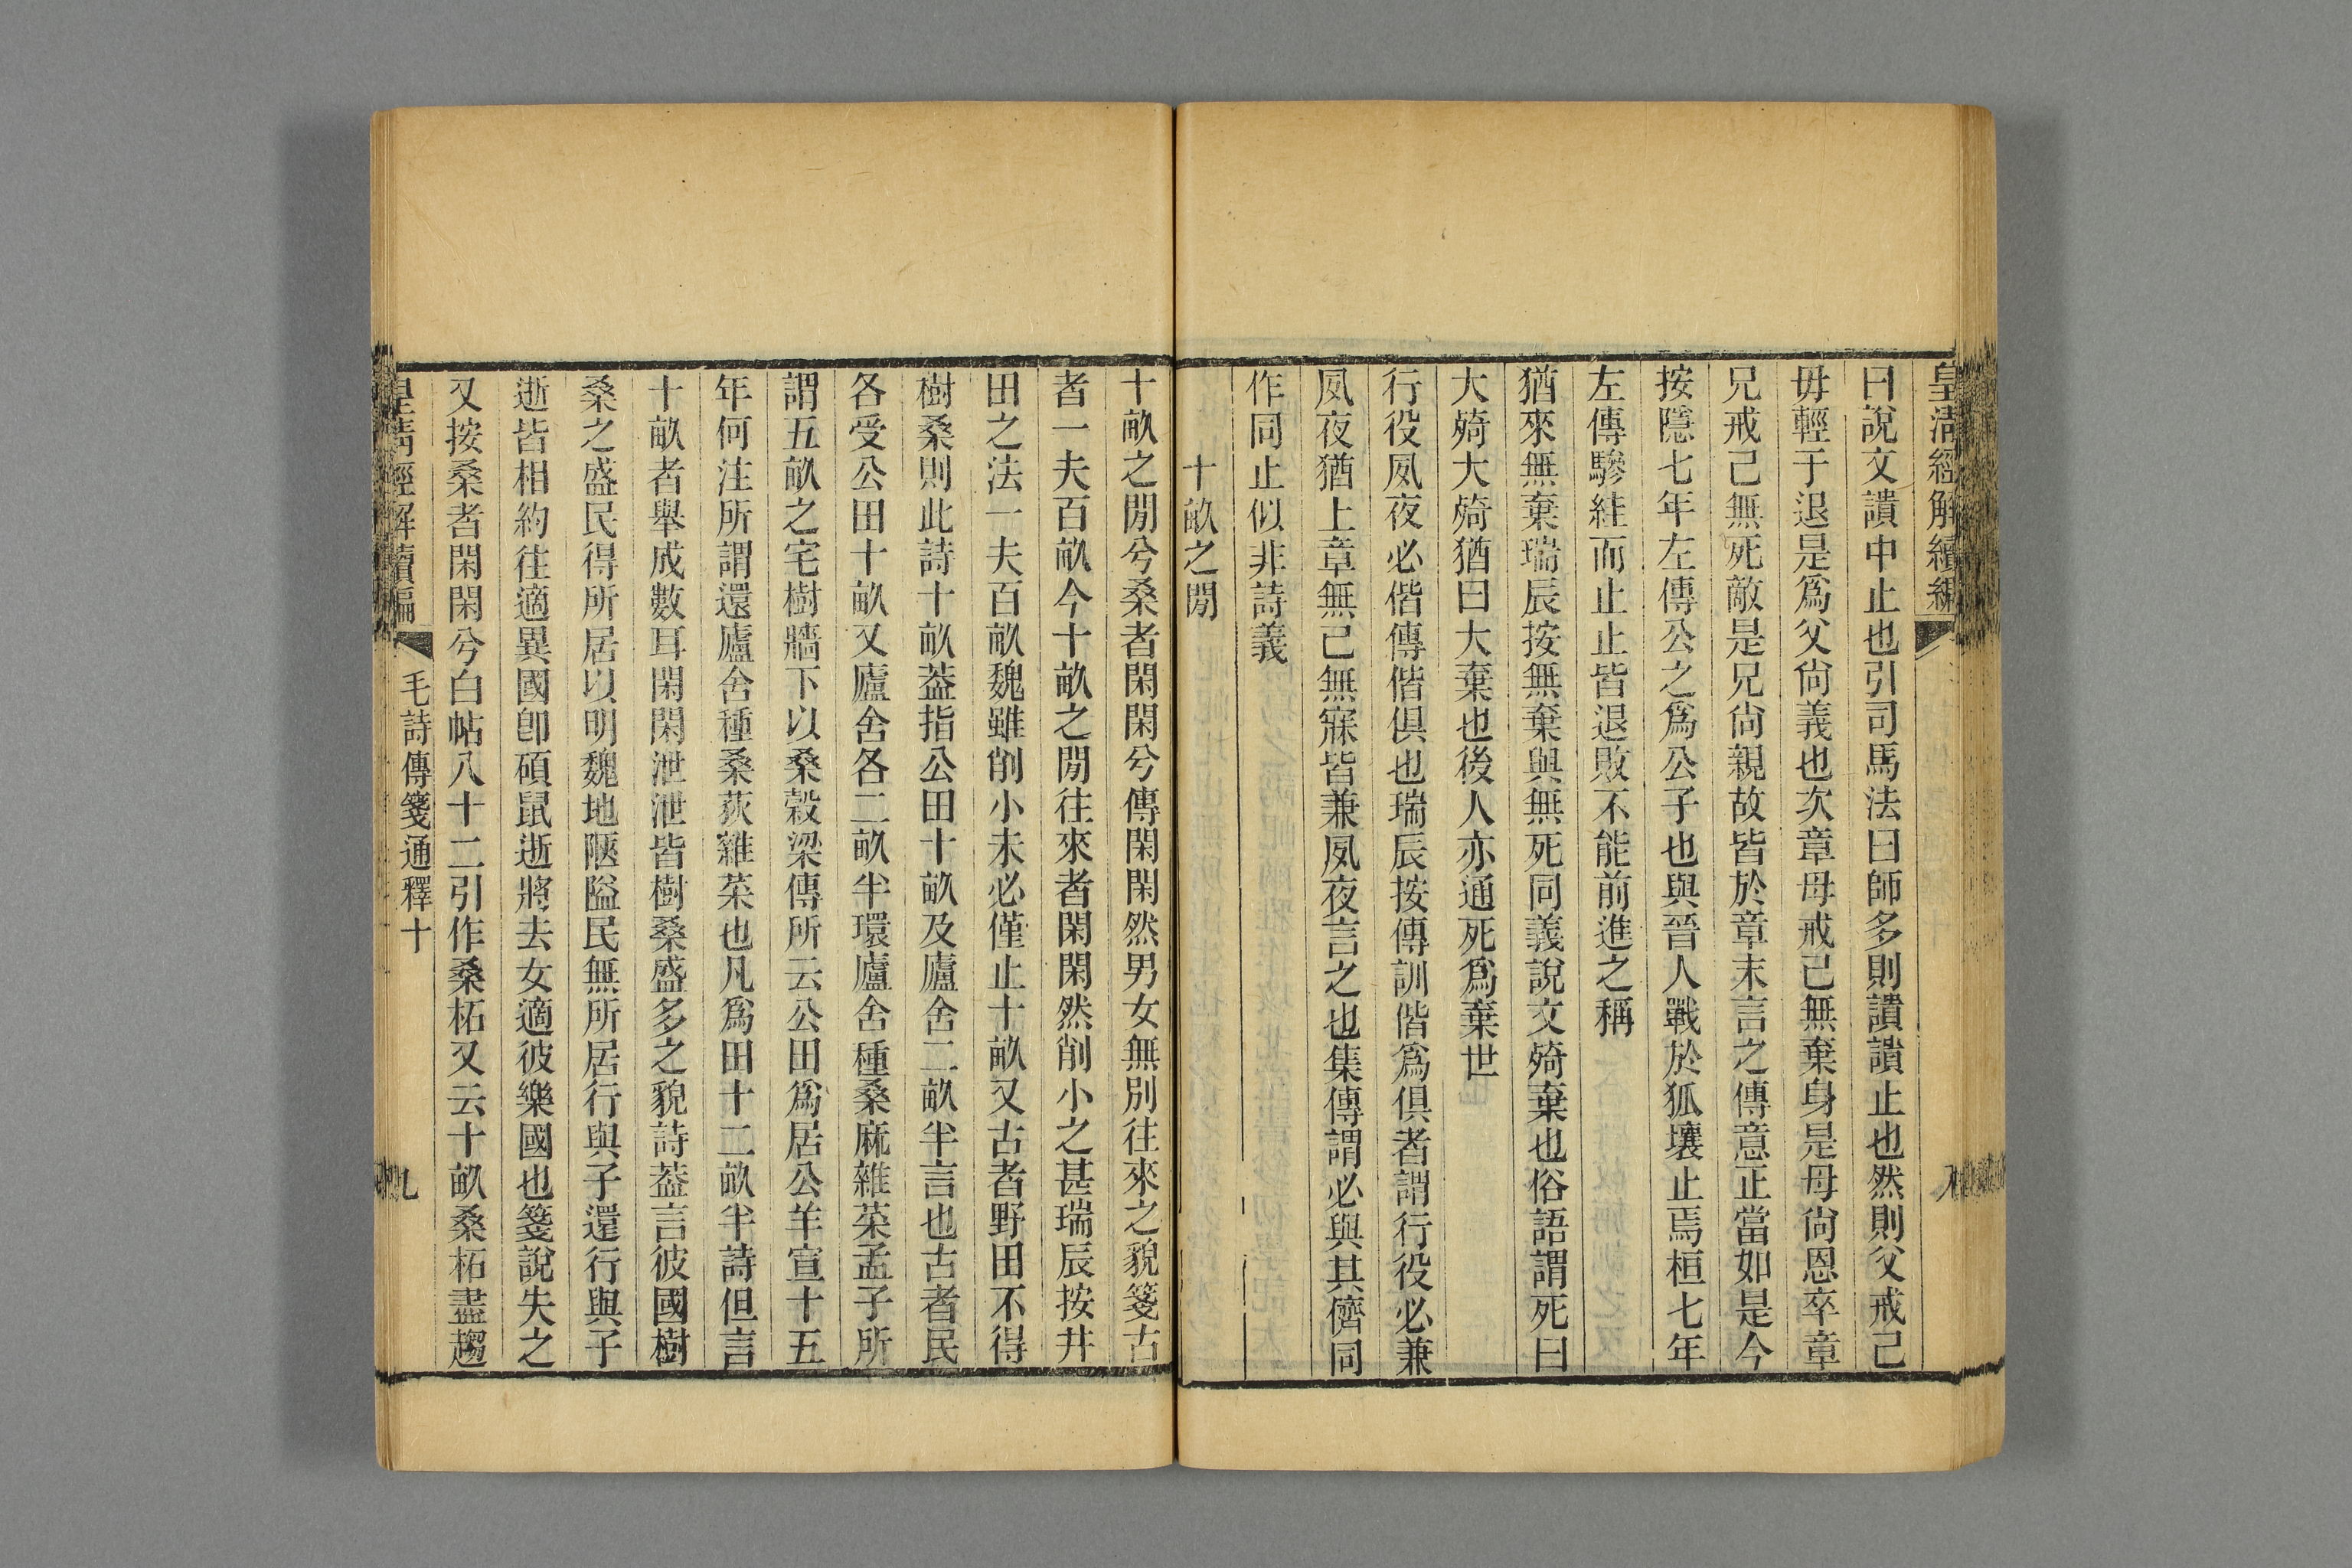 皇清經解續編
八
曰說文讀中止也引司馬法曰師多則讀讀止也然則父戒己
毋輕于退是爲父尙義也次章母戒己無棄身是母尙恩卒章
兄戒己無死敵是兄尙親故皆於章末言之傳意正當如是今
按隱七年左傳公之爲公子也與晉人戰於狐壤止焉桓七年
左傳驂絓而止止皆退敗不能前進之稱
猶來無棄瑞辰按無棄與無死同義說文䧢棄也俗語謂死曰
大䧢大䧢猶曰大棄也後人亦通死爲棄世
行役夙夜必偕傳偕俱也瑞辰按傳訓偕爲俱者謂行役必兼
夙夜猶上章無已無寐皆兼夙夜言之也集傳謂必與其儕同
作同止似非詩義
十畝之閒
十畝之閒兮桑者閑閑兮傳閑閑然男女無別往來之貌箋古
者一夫百畝今十畝之閒往來者閑閑然削小之甚瑞辰按井
田之法一夫百畝魏雖削小未必僅止十畝又古者野田不得
樹桑則此詩十畝葢指公田十畝及廬舍二畝半言也古者民
各受公田十畝又廬舍各二畝半環廬舍種桑麻雜菜孟子所
謂五畝之宅樹牆下以桑穀梁傳所云公田爲居公羊宣十五
年何注所謂還廬舍種桑荻雜菜也凡爲田十二畝半詩但言
十畝者舉成數耳閑閑泄泄皆樹桑盛多之貌詩葢言彼國樹
桑之盛民得所居以明魏地陿隘民無所居行與子還行與子
逝皆相約往適異國卽碩鼠逝將去女適彼樂國也箋說失之
又按桑者閑閑兮白帖八十二引作桑柘又云十畝桑柘盡趨
皇清經解續編
毛詩傳箋通釋十
九